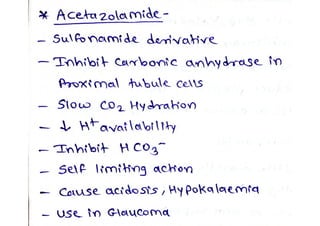 * Acetazolamide -
- Sulfonamide derivative
- Inhibit Carbonic anhydrase in
Proximal tubule cells
- Slow CO2 Hydration
- ↓ H+ availability
- Inhibit HCO3-
- Self limiting action
- Cause acidosis, Hypokalaemia
- Use in Glaucoma